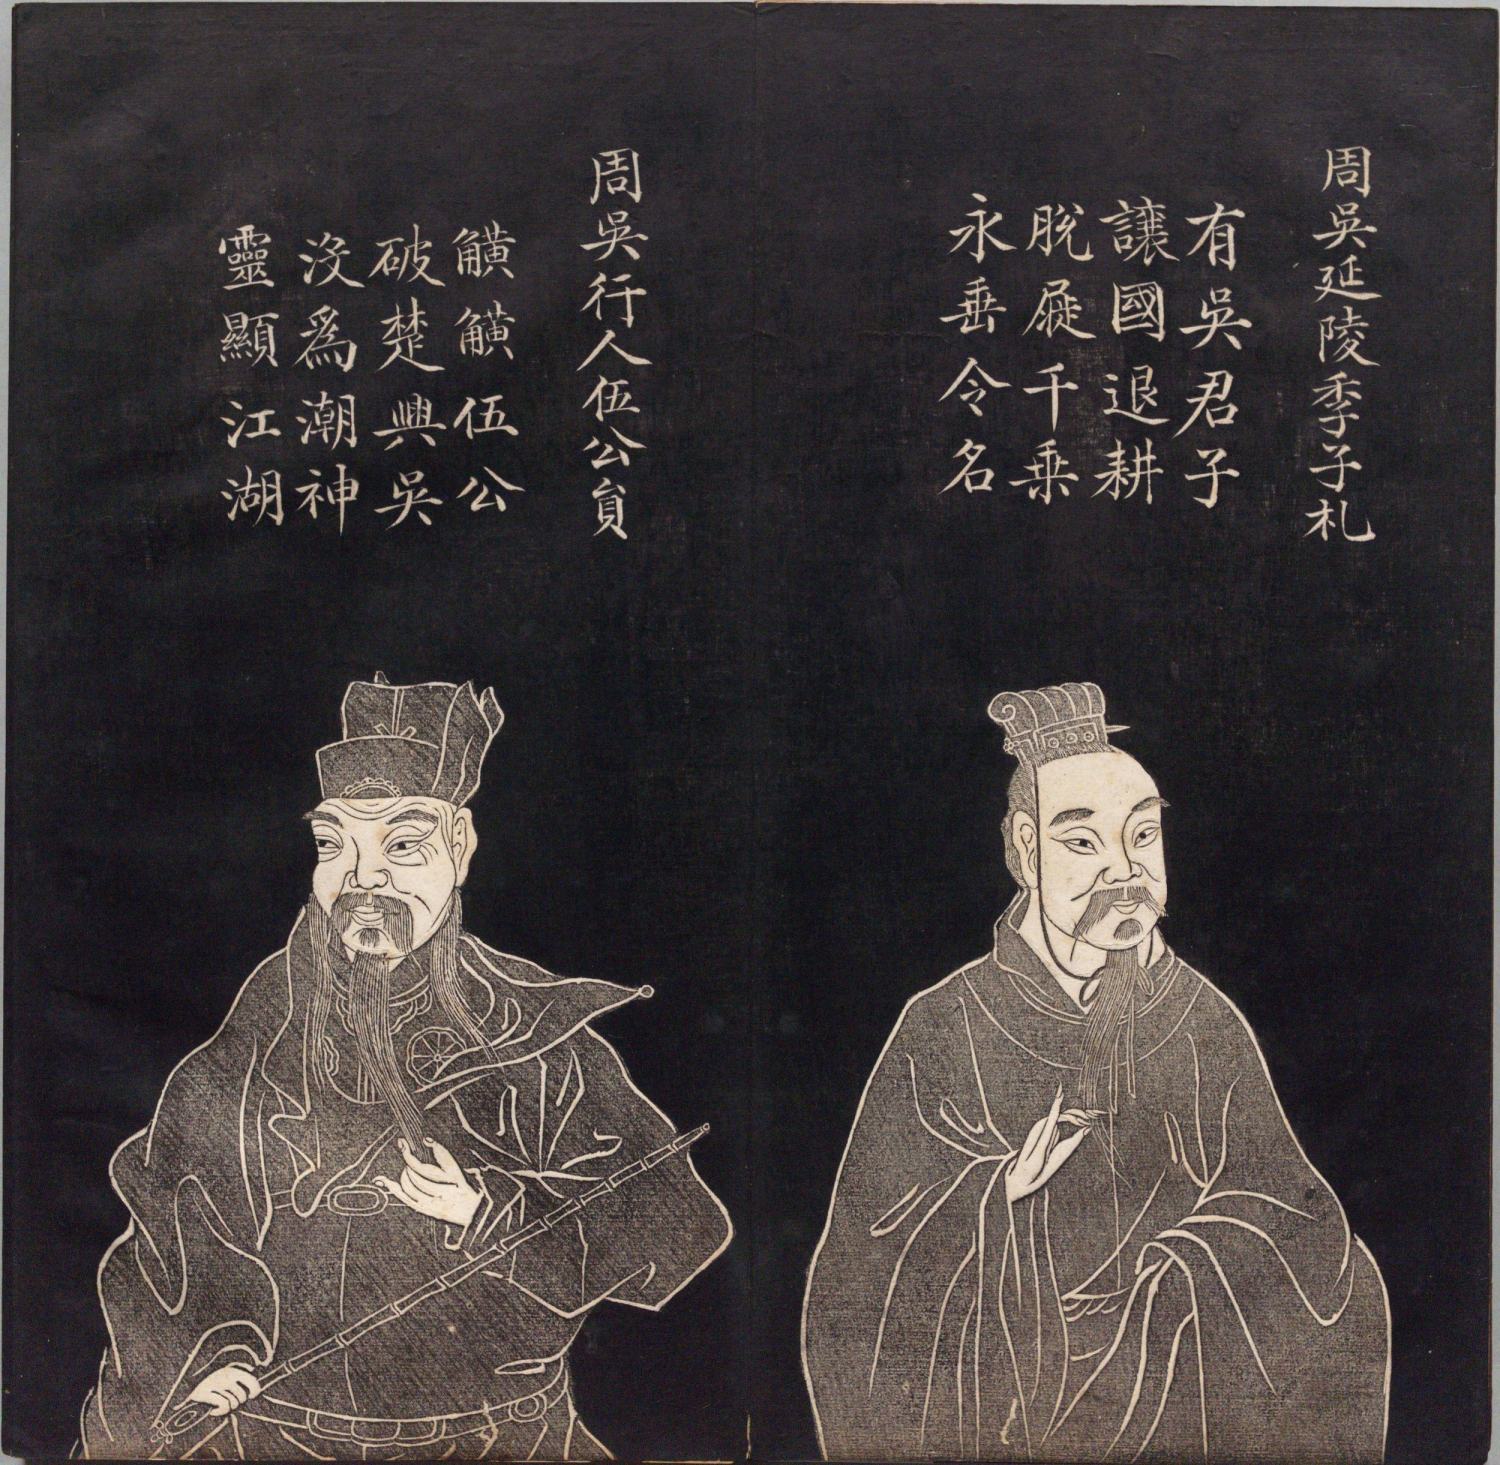 周吳延陵季子札
有吳君子
讓國退耕
脫屣千乗
永垂令名
周吳行人伍公員
觵觵伍公
破楚興吳
沒為潮神
靈顯江湖